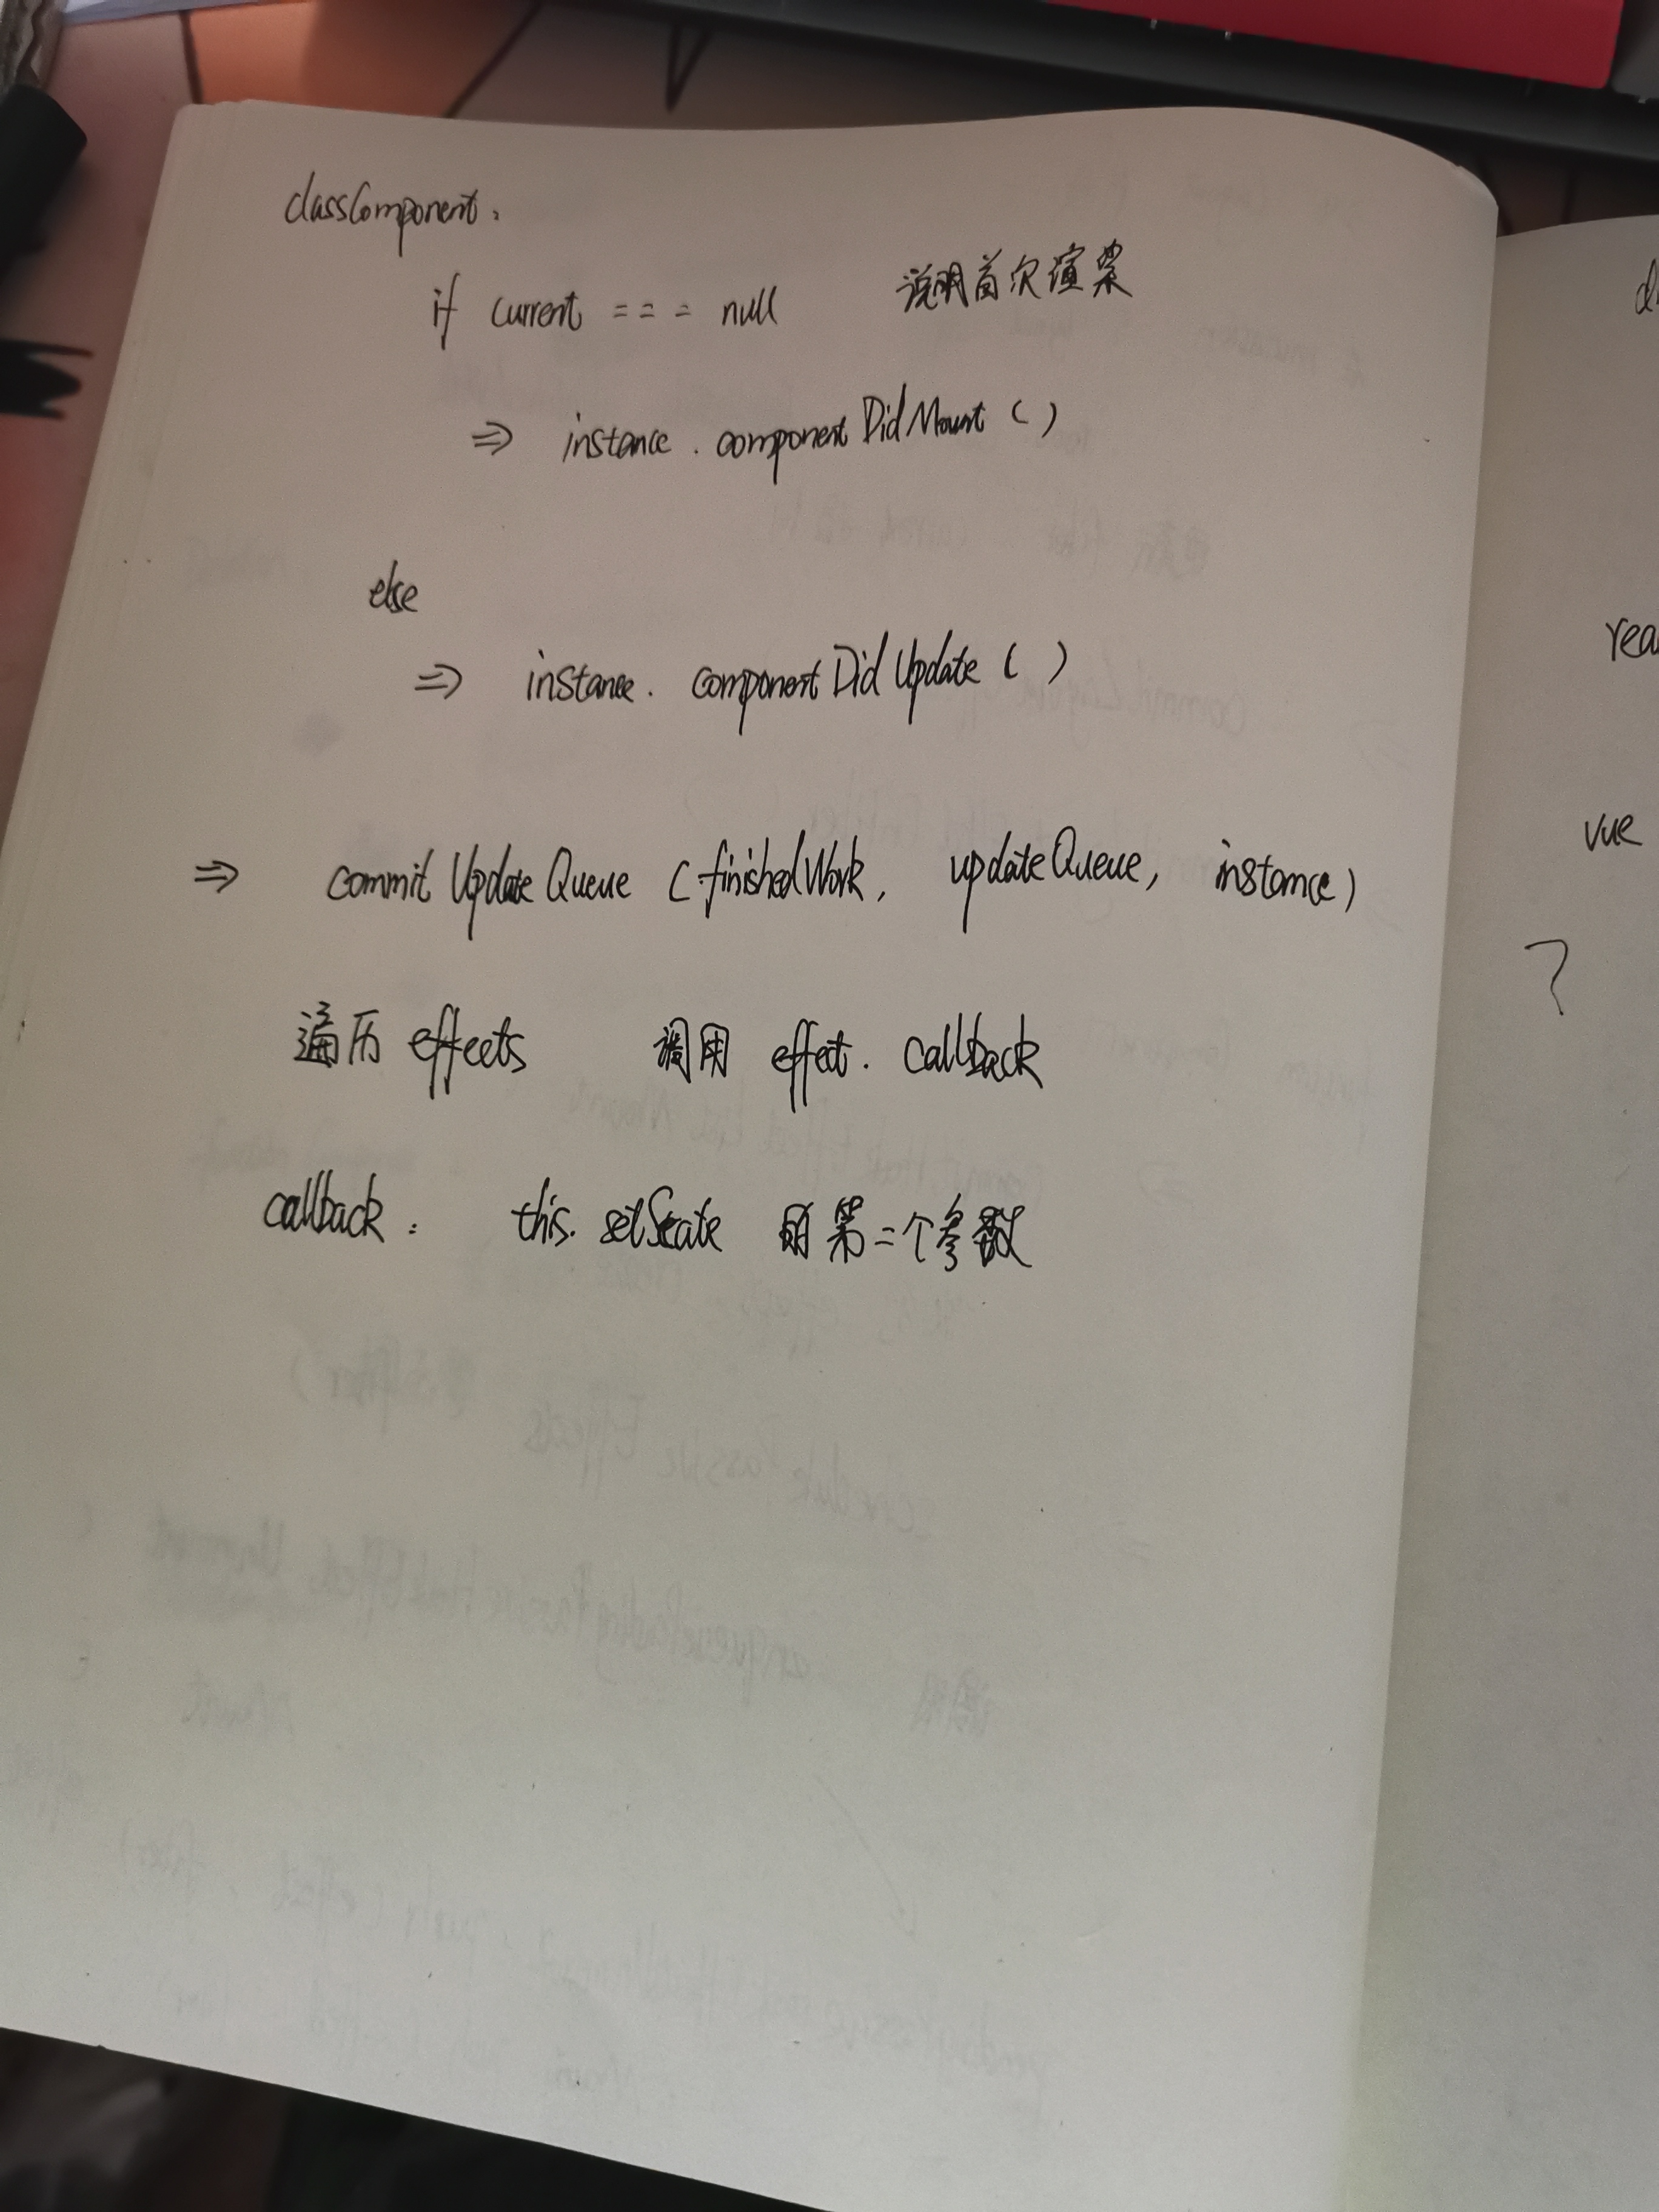 classComponent:
if current === null 说明首次渲染
=> instance.componentDidMount()
else
=> instance.componentDidUpdate()
=> commitUpdateQueue (finishedWork, updateQueue, instance)
遍历 effects 调用 effect.callback
callback: this.setState 的第二个参数
vue
?